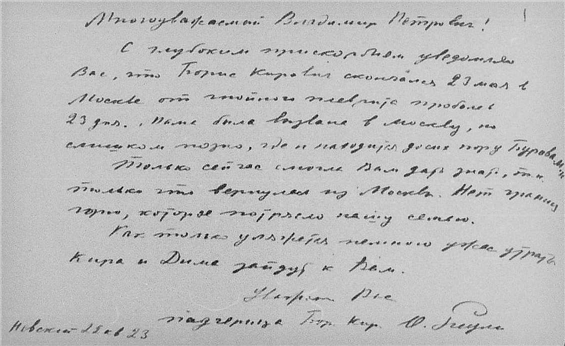 Многоуважаемый Владимир Петрович!
С глубоким прискорбием уведомляю
Вас, что Борис Кирович скончался 23 мая в
Москве от гнойного плеврита проболев
23 дня. Мама была вызвана в Москву, но
слишком поздно, где и находится до сих пору
Только сейчас смогла Вам дать знать, т.к.
только что вернулась из Москвы. Нет границ
горю, которое потрясло нашу семью.
Как только уляжется немного ужас утраты
Кира и Дима зайдут к Вам.
Вас
падчерица Бор. Кир. О.
Невский 25 кв 23